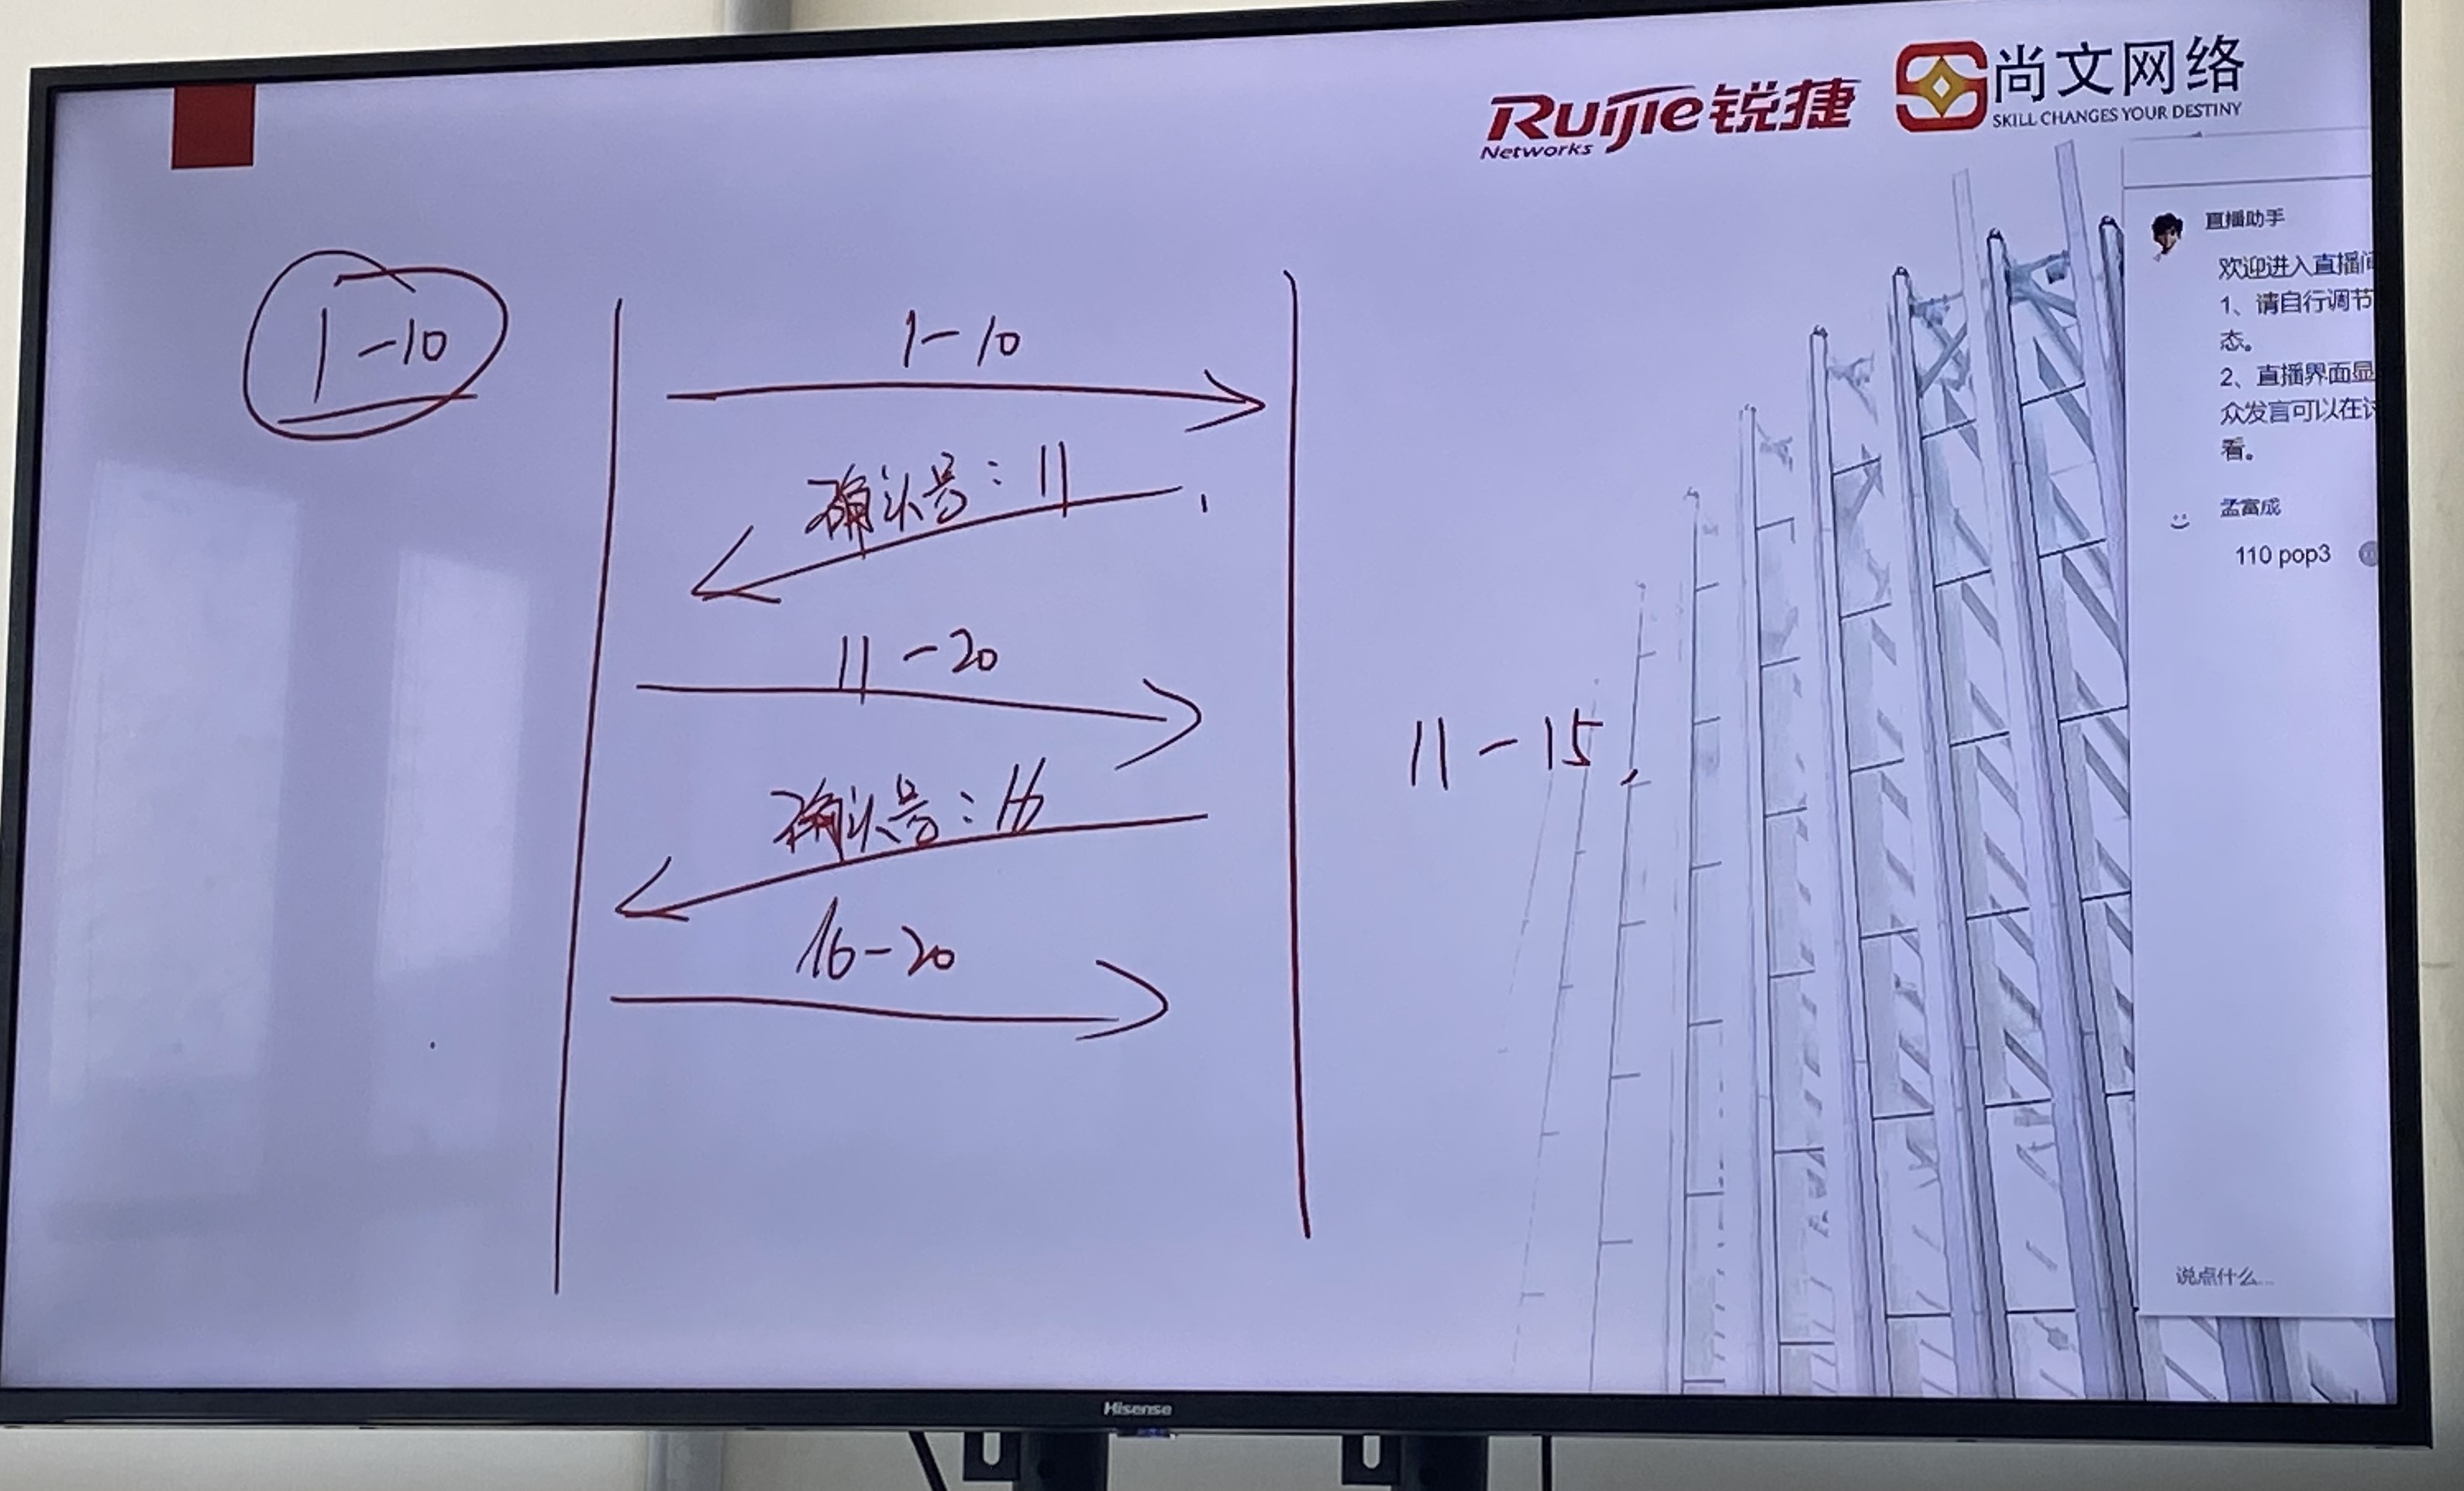 Ruijie锐捷
Networks
尚文网络
SKILL CHANGES YOUR DESTINY
1-10
1-10
确认号：11
11-20
确认号：16
16-20
11-15
直播助手
欢迎进入直播间
1、请自行调节
态。
2、直播界面显
众发言可以在讨
看。
孟富成
110 pop3
说点什么...
Hisense